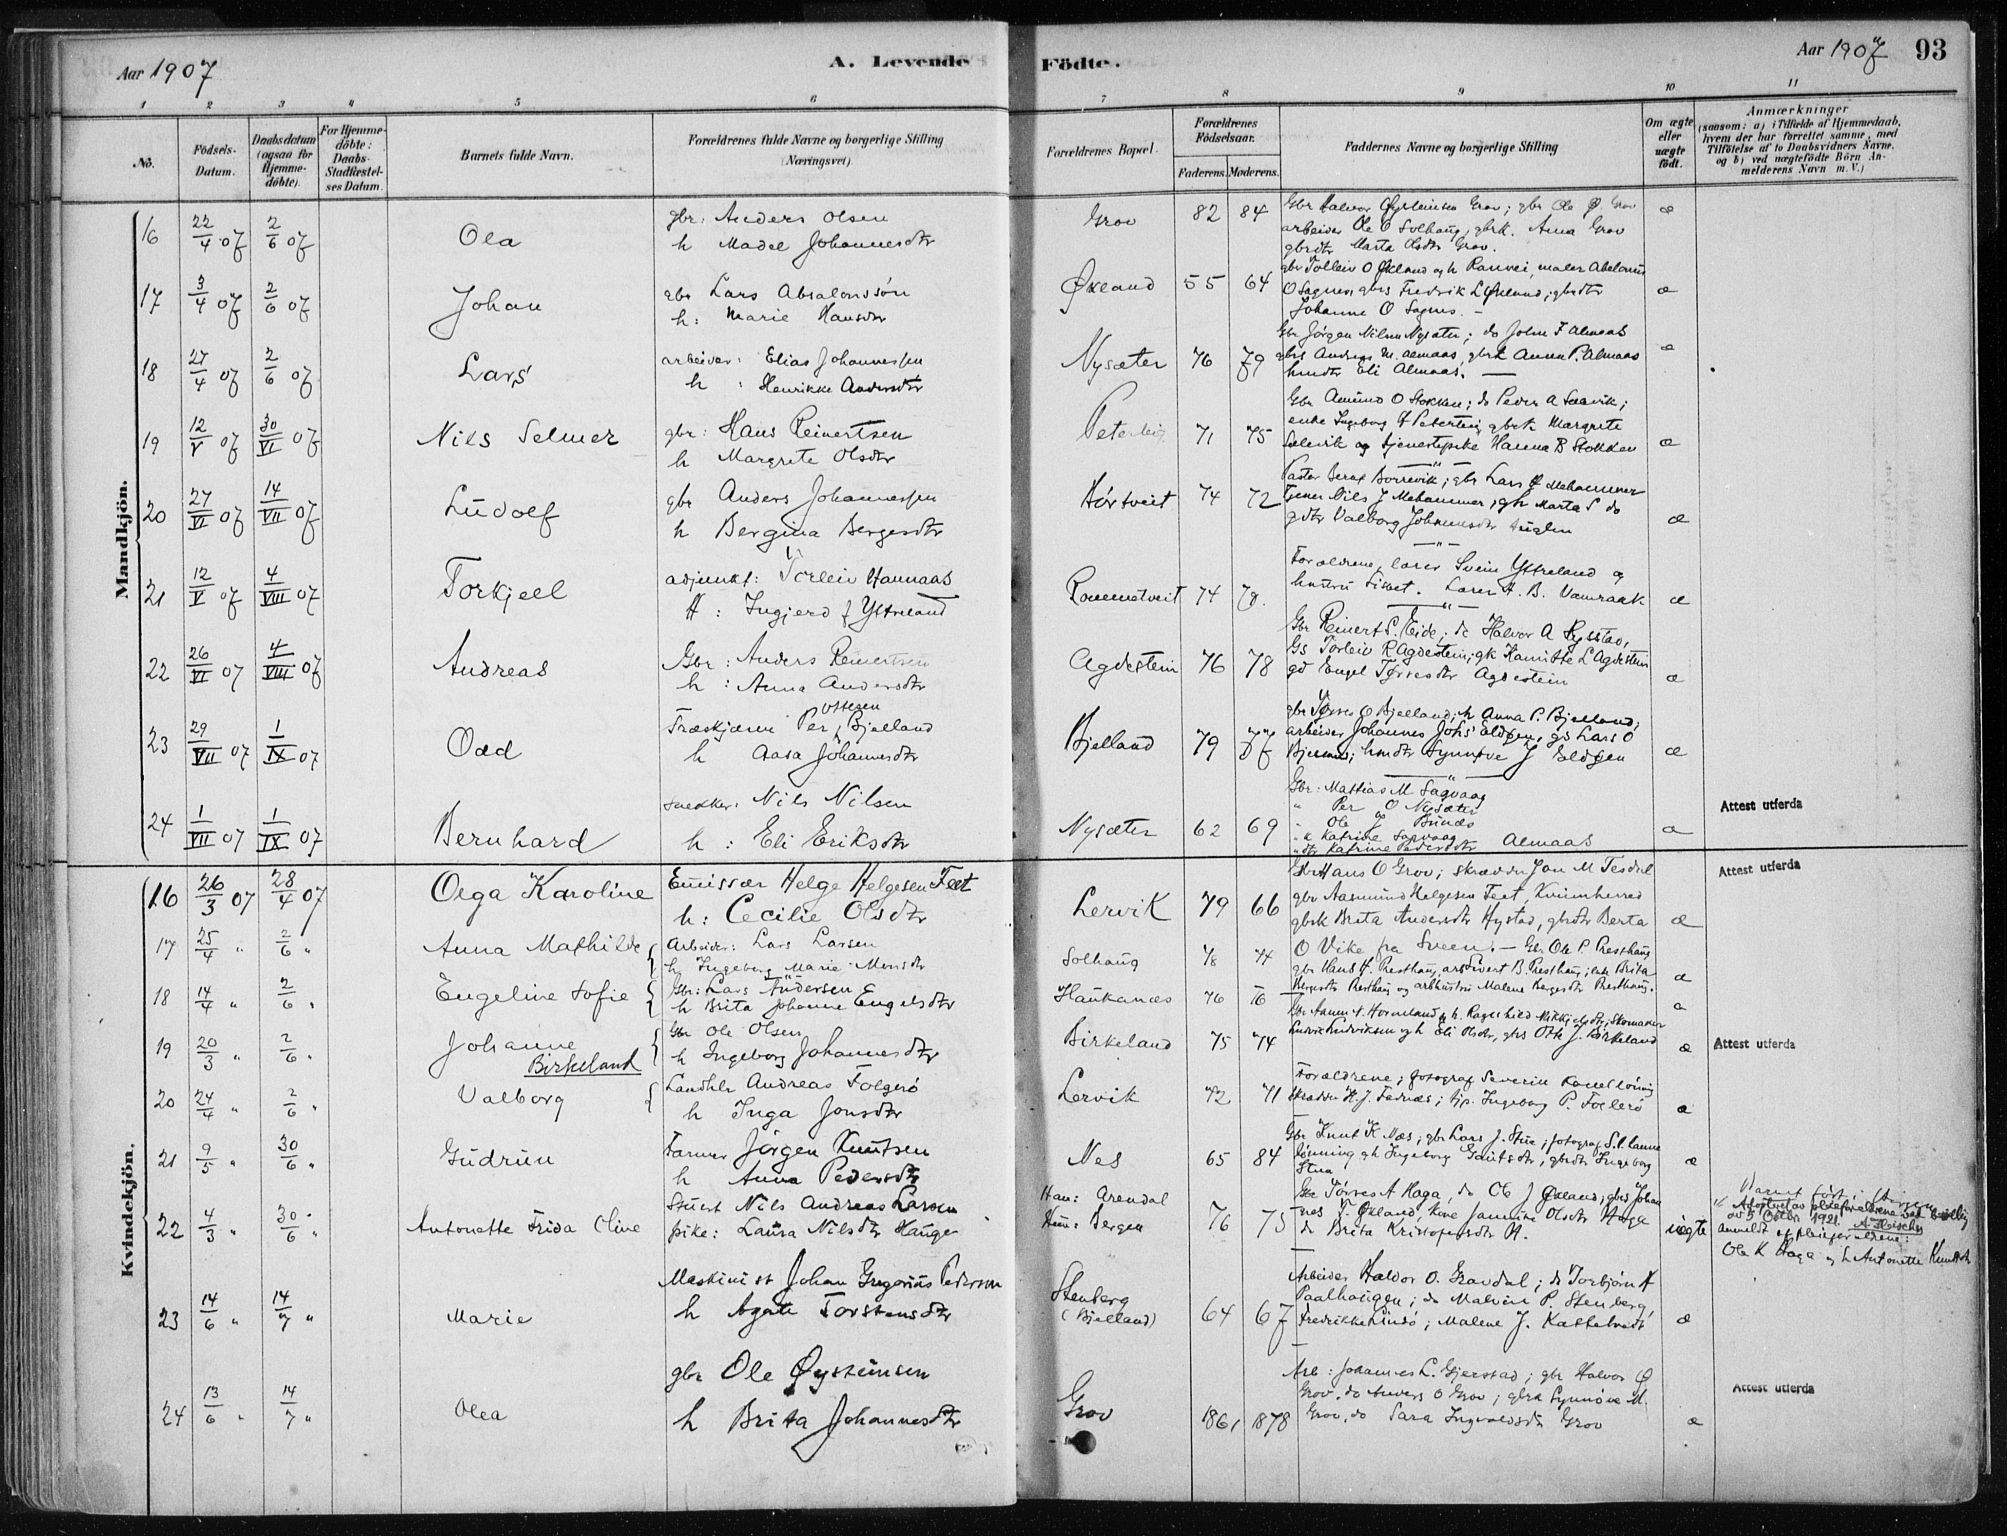 Aar 1907
A. Levende
Födte.
Aar 1907
93
1 2 3 4 5 6 7 8 9 10 11
No.
Födsels-Datum.
Daabsdatum (ogsaa för Hjemme-döbte).
For Hjemme-döbte: Daabs-Stadfæstel-ses Datum.
Barnets fulde Navn.
Forældrenes fulde Navne og borgerlige Stilling (Næringsvei).
Forældrenes Bopæl.
Forældrenes Födselsaar.
Faderens. Moderens.
Faddernes Navne og borgerlige Stilling
Om ægte eller uægte födt.
Anmærkninger
(saasom: a) i Tilfælde af Hjemmedaab, hvem der har forrettet samme, med Tilföielse af to Daabsvidners Navne, og b) ved uægtefödte Börn An-melderens Navn m. V.)
Mandkjön.
16 22/4 07 2/6 07 Ola gbr: Anders Olsen
h Madel Johannesdtr Grov 82 84 Gbr Halvor Øysteinsen Grov; gbr Ole Ø Grov
arbeider Ole O Solhaug, gbrk. Anna Grov
gbrdtr Marta Olsdtr Grov. æ
17 3/4 07 2/6 07 Johan gbr Lars Absalonssön
h: Marie Hansdtr Øxland 55 64 gbr Tolleiv O Økland og h Ranvei, maler Abelonius
O Sagnes, gbrs Fredrik L Økland; gbrdtr
Johanne O Sagnes. æ
18 27/4 07 2/6 07 Lars arbeider: Elias Johannessen
h: Henrikke Andersdtr Nysæter 76 79 Gbr Jörgen Nilsen Nysæter; do John F Almaas
gbrs Andreas M. Almaas, gbrk Anna P. Almaas
hmdtr Eli Almaas. æ
19 12/V 07 30/VI 07 Nils Selmer gbr: Hans Reinertsen
h Margrete Olsdtr 71 75 Gbr Amund O Stokken; do Peder A Sælevik;
enke Ingeborg gbrk Margrete
Sælevik og tjenestepike Hanna B Stokken æ
20 27/VI 07 14/VII 07 Ludolf gbr Anders Johannessen
h Bergina Bergesdtr Hörtveit 74 72 Pastor Borrevik; gbr Lars Mehammer
Tjener Nils J Mehammer; gbr Marta S do
gdtr Valborg Johannesdtr æ
21 12/V 07 4/VIII 07 Torkjell adjunkt: Torleiv Hannaas
H: Ingjerd f Ystreland Rommetveit 74 78. Forældrene, lærer Svein Ystreland og
hustru Sisset. Lærer H. B. Vamraak æ
22 26/VI 07 4/VIII 07 Andreas Gbr: Anders Reinertsen
h: Anna Andersdtr Agdestein 76 78 Gbr Reinert S. Eide; do Halvor A Rysstad,
Gs Torleiv R Agdestein; gk Hanitte L Agdestein
gd Engel Tørresdtr Agdestein æ
23 29/VII 07 1/IX 07 Odd Træskjærer Per Ottesen Bjelland
h Aasa Johannesdtr Bjelland 79 77 gbr Tørres O Bjelland; h Anna P. Bjelland;
arbeider Johannes Johs' Eldøen, gs Lars O
Bjelland; hmdtr Synnøve J Eldøen æ
24 1/VII 07 1/IX 07 Bernhard snedker: Nils Nilsen
h: Eli Eriksdtr Nysæter 62 69 Gbr: Mathias M Sagvaag
" Per O Nysæter
" Ole J Bunæs
" k Katrine Sagvaag
" dtr Katrine Pedersdtr Almaas æ Attest utferda
Kvindekjön.
16 26/3 07 28/4 07 Olga Karoline Emissær Helge Helgesen Feet
h: Cecilie Olsdtr Lervik 79 66 Gbr Hans O Grov; skrædder Jon M Tesdal
gbr Aasmund Helgesen Feet, Kvinnherred
gbrk Brita Andersdtr Hystad, gbrdtr Berta
O Vike fra Sveen. æ Attest utferda
17 25/4 " 2/6 " Anna Mathilde Arbeider: Lars Larsen
h Ingeborg Marie Monsdtr Solhaug 78 74 Gbr Ole P. Presthaug
gbr Hans H. Presthaug, arb Sivert B. Presthaug; enke Brita
Bergesdtr Presthaug og arbhustru Malene Bergesdtr Presthaug. æ
18 14/4 " 2/6 " Engeline Sofie Gbr: Lars Andersen
h Brita Johanne Engelsdtr Haukanæs 76 76 æ
19 20/3 " 2/6 " Johanne
Birkeland Gbr Ole Olsen
h Ingeborg Johannesdtr Birkeland 75 74 Ludvik Ludviksen og h Eli Olsdtr, gbrs Otte J. Birkeland æ Attest utferda
20 24/4 " 2/6 " Valborg Landhlr Andreas Folgerö
h Inga Jonsdtr Lervik 72 71 Forældrene; fotograf Severin Lönning
skrædder H. J. Fednæs; tjp. Ingeborg P. Folgerö æ
21 9/5 " 30/6 " Gudrun Farmer Jörgen Knutsen
h Anna Pedersdtr Nes 65 84 Gbr Knut K Næs; gbr Lars J. Stue; fotograf S.
Lönning gk Ingeborg Gautsdtr, gbrdtr Ingeborg
Stua æ
22 4/3 " 30/6 " Antonette Frida Oline Stuert Nils Andreas Larsen
pike: Laura Nilsdtr Hauge Han: Arendal
Hun: Bergen 76 75 Gbr Tørres A Haga, do Ole J Økland; gbrs Johan
nes T. Økland, kone Jannine Olsdtr Haga
do Brita Kristofersdtr H. uægte Adoptert av pleieforældrene ved bevilling
av 5 Octbr. 1921. A Fleischer
anmeldt af pleieforældrene:
Ole K Haga og h Antonette Knutsdtr
23 14/6 " 14/7 " Marie Maskinist Johan Gregorius Pederson
h Agate Torstensdtr Stenberg
(Bjelland) 64 67 Arbeider Haldor O. Gravdal; do Torbjörn A
Paalhaugen; do Malvin P. Stenberg,
Fredrikke Lindö; Malene J. Kattetvedt æ
24 13/6 " 14/7 " Olea gbr Ole Øysteinsen
h Brita Johannesdtr Grov 1861 1878 Arb: Johannes L. Gjerstad; gbr Halvor Ø
Grov, do Anders O Grov; gbrk Synnøve M.
Grov, do Sara Ingvaldsdtr Grov æ Attest utferda